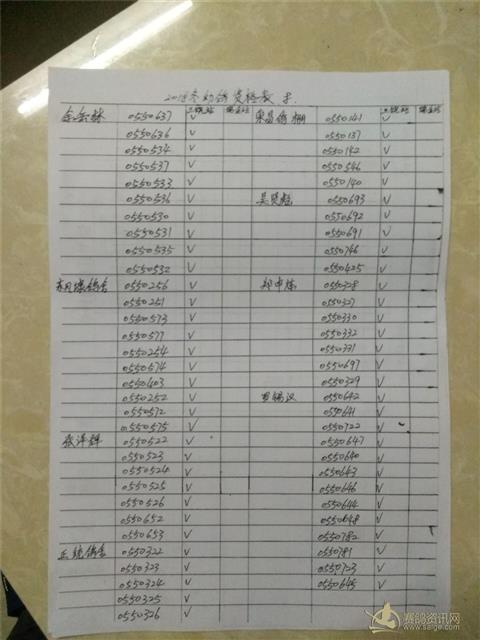 三锁站 荣昌鸽棚 三锁站
0550637 ✓ 0550141 ✓
0550636 ✓ 0550137 ✓
0550534 ✓ 0550142 ✓
0550537 ✓ 0550546 ✓
0550533 ✓ 0550140 ✓
0550536 ✓ 0550693 ✓
0550530 ✓ 0550692 ✓
0550531 ✓ 0550691 ✓
0550535 ✓ 0550746 ✓
0550532 ✓ 0550425 ✓
0550256 ✓ 0550328 ✓
0550251 ✓ 0550327 ✓
0550573 ✓ 0550330 ✓
0550577 ✓ 0550332 ✓
0550254 ✓ 0550331 ✓
0550574 ✓ 0550697 ✓
0550403 ✓ 0550329 ✓
0550252 ✓ 0550642 ✓
0550572 ✓ 0550641 ✓
0550575 ✓ 0550722 ✓
张洋辉 0550522 ✓ 0550647 ✓
0550523 ✓ 0550640 ✓
0550524 ✓ 0550643 ✓
0550525 ✓ 0550646 ✓
0550526 ✓ 0550644 ✓
0550652 ✓ 0550648 ✓
0550653 ✓ 0550782 ✓
0550322 ✓ 0550781 ✓
0550323 ✓ 0550723 ✓
0550324 ✓ 0550645 ✓
0550325 ✓
0550326 ✓
赛鸽资讯网
www.saige.com